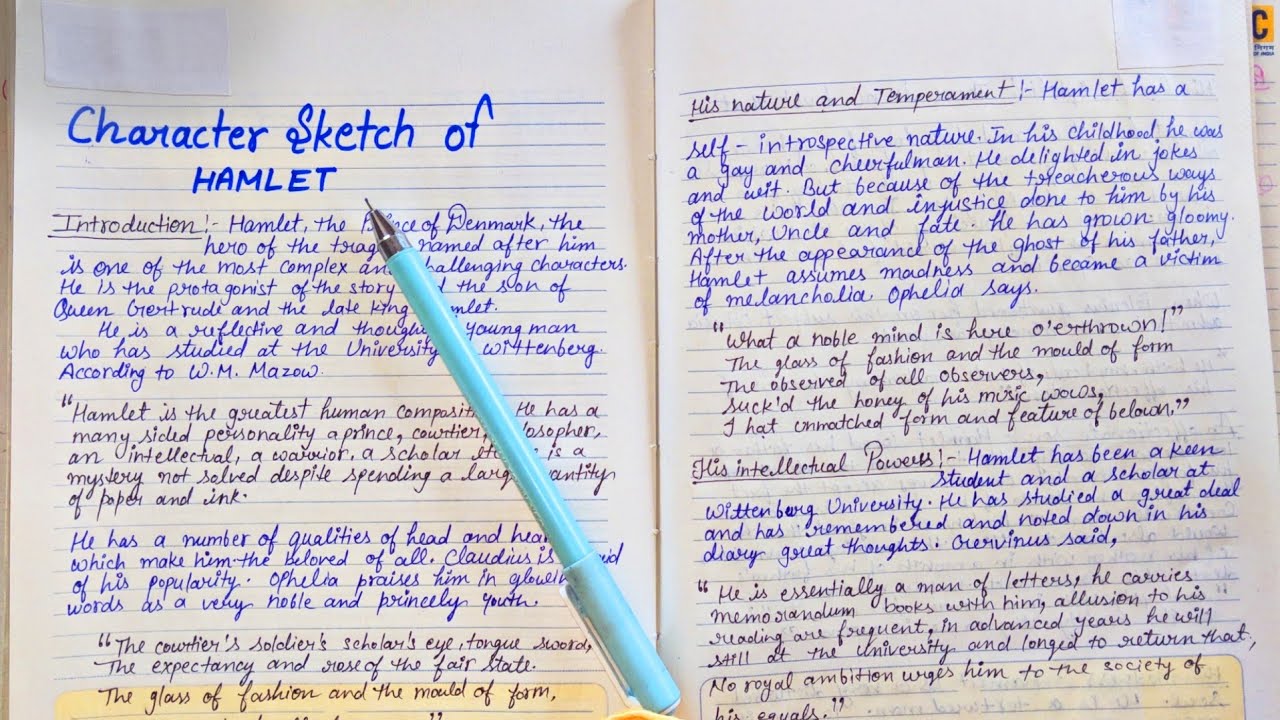 Character Sketch of
HAMLET
Introduction :- Hamlet, the Prince of Denmark, the
hero of the named after him
is one of the most complex and challenging characters.
He is the protagonist of the story the son of
Queen Gertrude and the late king
He is a reflective and young man
who has studied at the University Wittenberg.
According to W.M. Mazow.
"Hamlet is the greatest human He has a
many sided personality a prince, courtier,
an intellectual, a warrior, a scholar is a
mystery not solved despite spending a
of paper and ink.
He has a number of qualities of head and
which make him the beloved of all. Claudius is
of his popularity. Ophelia praises him in
words as a very noble and princely youth.
"The courtier's soldier's scholar's eye, tongue sword,
The expectancy and rose of the fair state.
The glass of fashion and the mould of form,
His nature and Temperament :- Hamlet has a
self - introspective nature. In his childhood he was
a gay and cheerfulman. He delighted in jokes
and wit. But because of the treacherous ways
of the world and injustice done to him by his
mother, Uncle and fate. He has grown gloomy.
After the appearance of the ghost of his father,
Hamlet assumes madness and became a victim
of melancholia. Ophelia says.
"What a noble mind is here o'erthrown!"
The glass of fashion and the mould of form
The observed of all observers,
Suck'd the honey of his music vows,
I hat unmatched form and feature of belown."
His intellectual Powers :- Hamlet has been a keen
student and a scholar at
Wittenberg University. He has studied a great deal
and has remembered and noted down in his
diary great thoughts. Gervinus said,
"He is essentially a man of letters, he carries
memorandum books with him, allusion to his
reading are frequent, in advanced years he will
still at the university and longed to return that,
No royal ambition urges him to the society of
his equals."
C